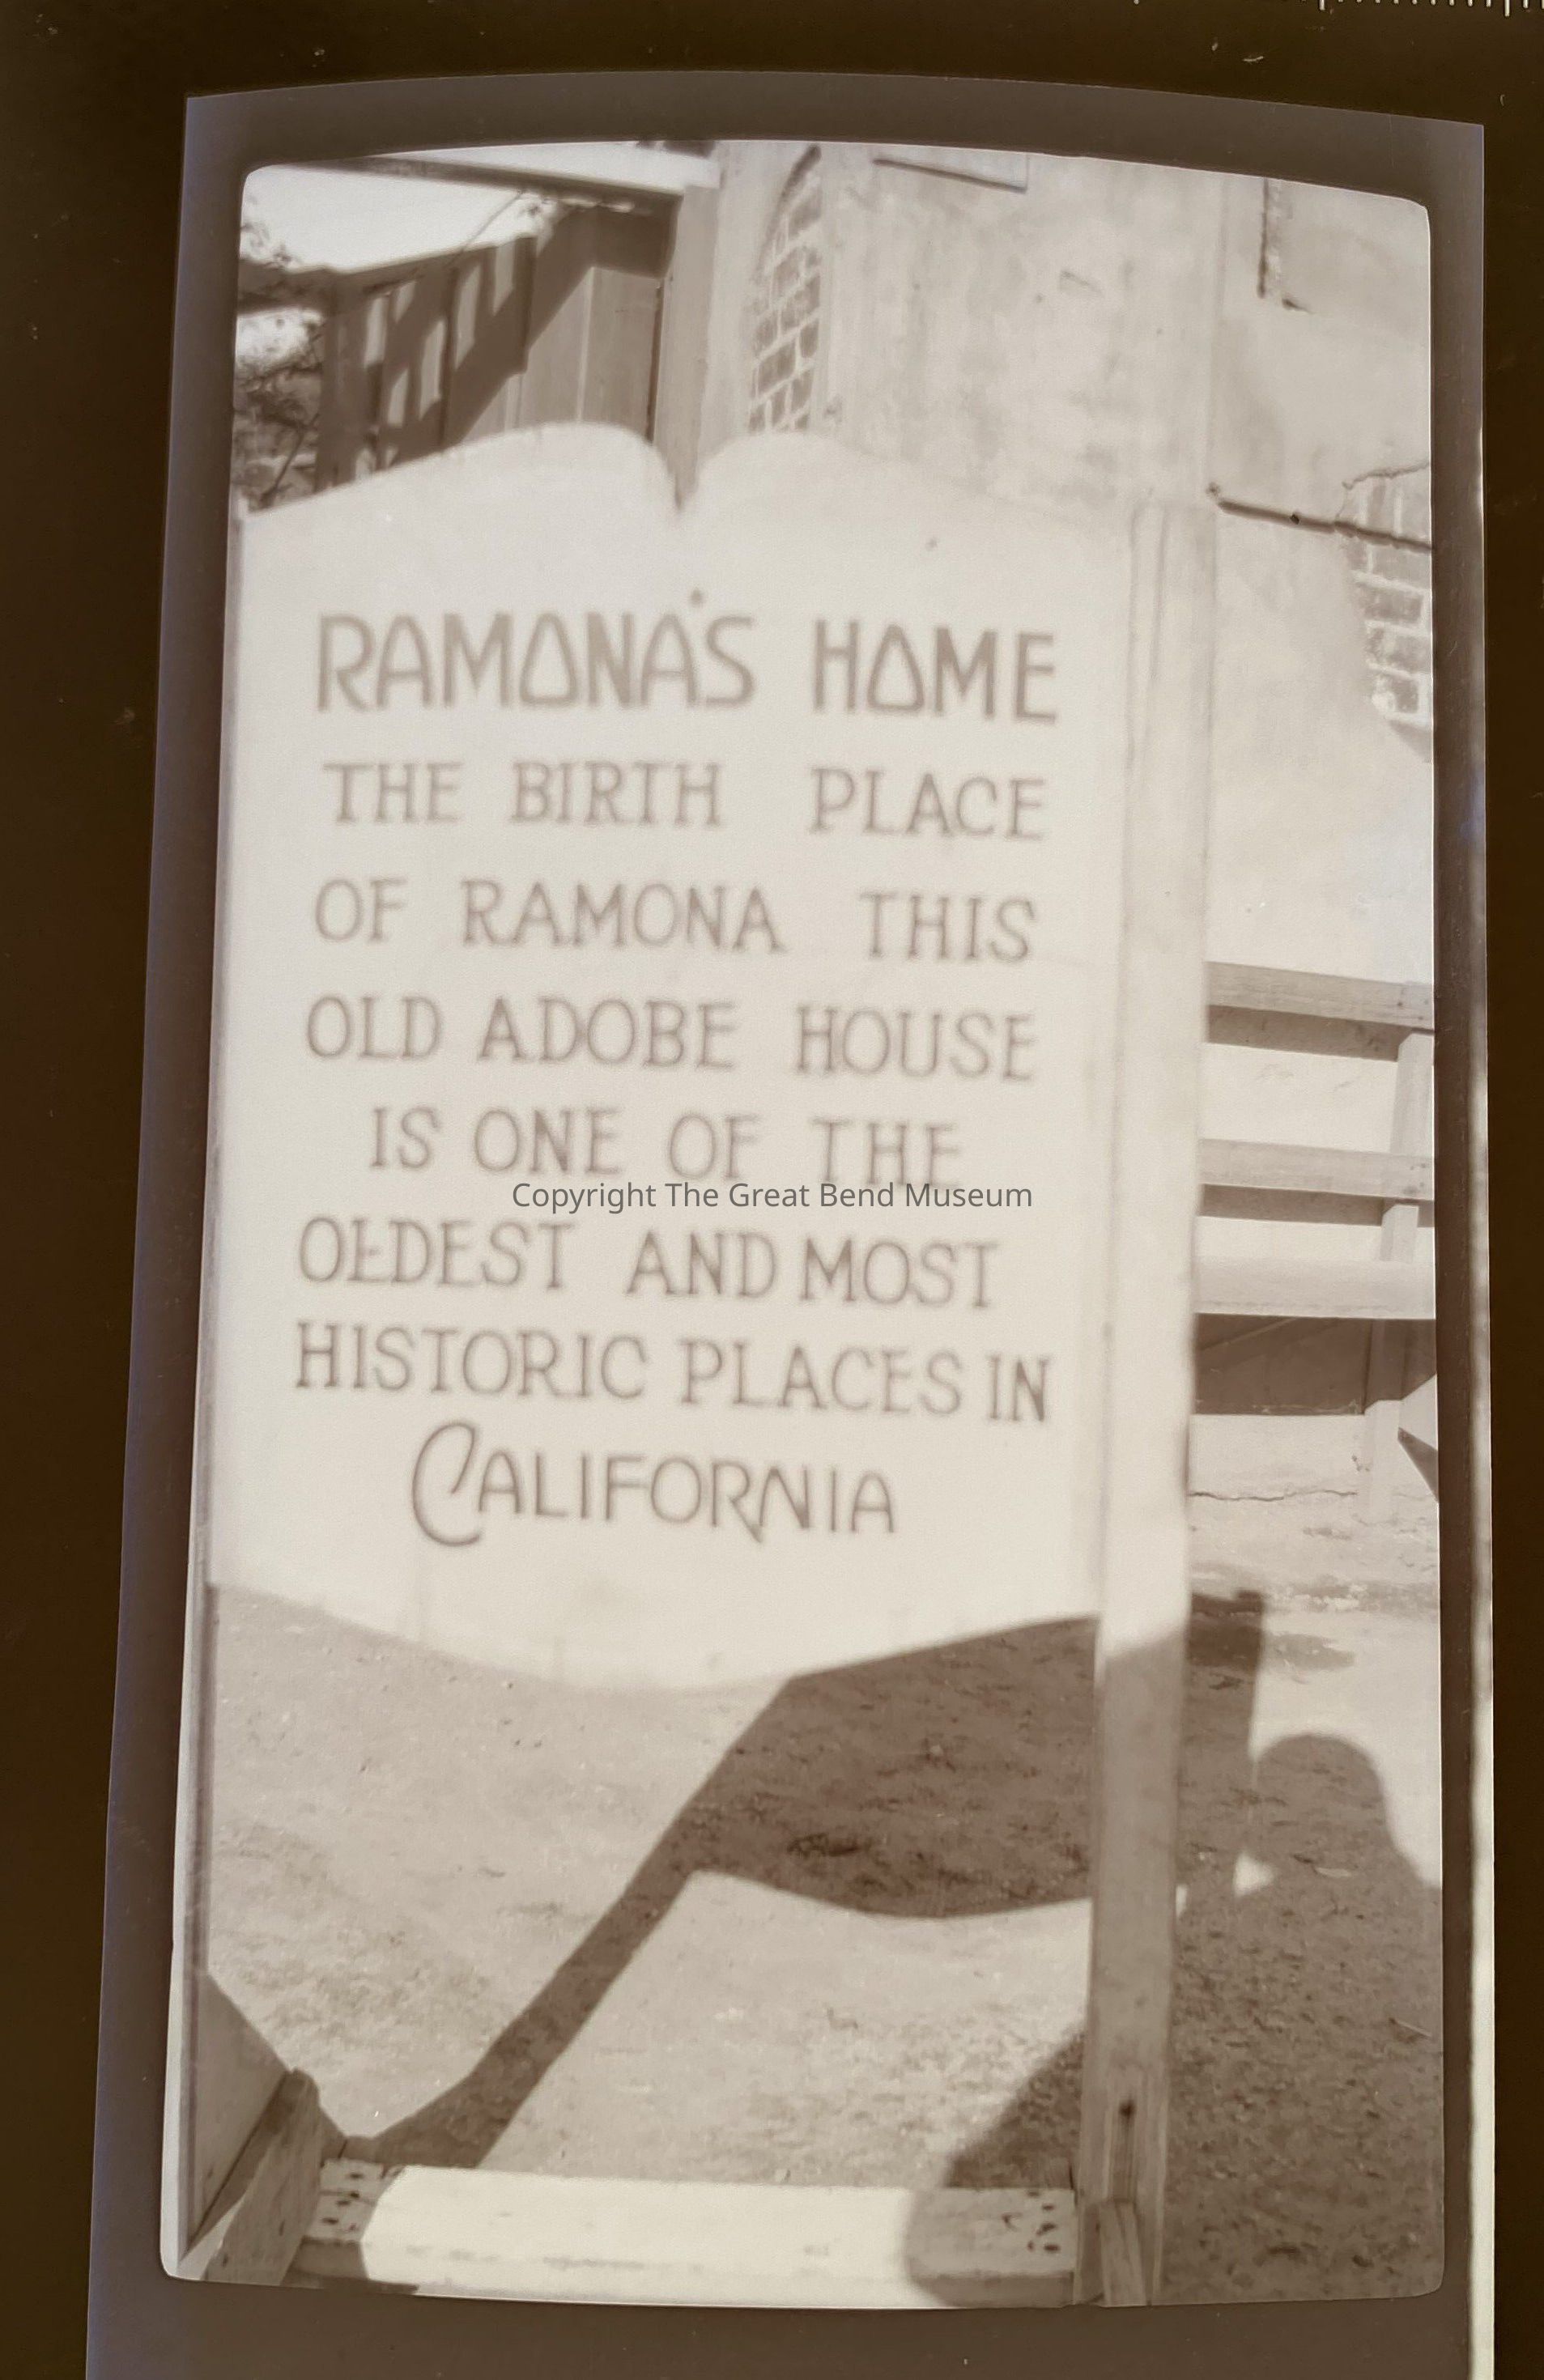 RAMONA'S HOME
THE BIRTH PLACE
OF RAMONA THIS
OLD ADOBE HOUSE
IS ONE OF THE
Copyright The Great Bend Museum
OLDEST AND MOST
HISTORIC PLACES IN
CALIFORNIA